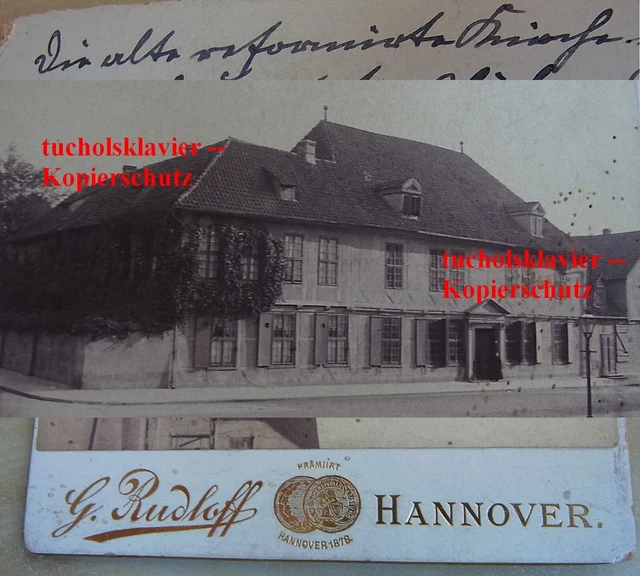 Die alte reformirte Kirche.
tucholsklavier --
Kopierschutz
tucholsklavier --
Kopierschutz
G. Rudloff
PRÄMIIRT
HANNOVER 1878.
HANNOVER.